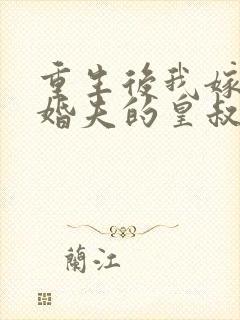 重生後我嫁
婚夫的皇叔
蘭江